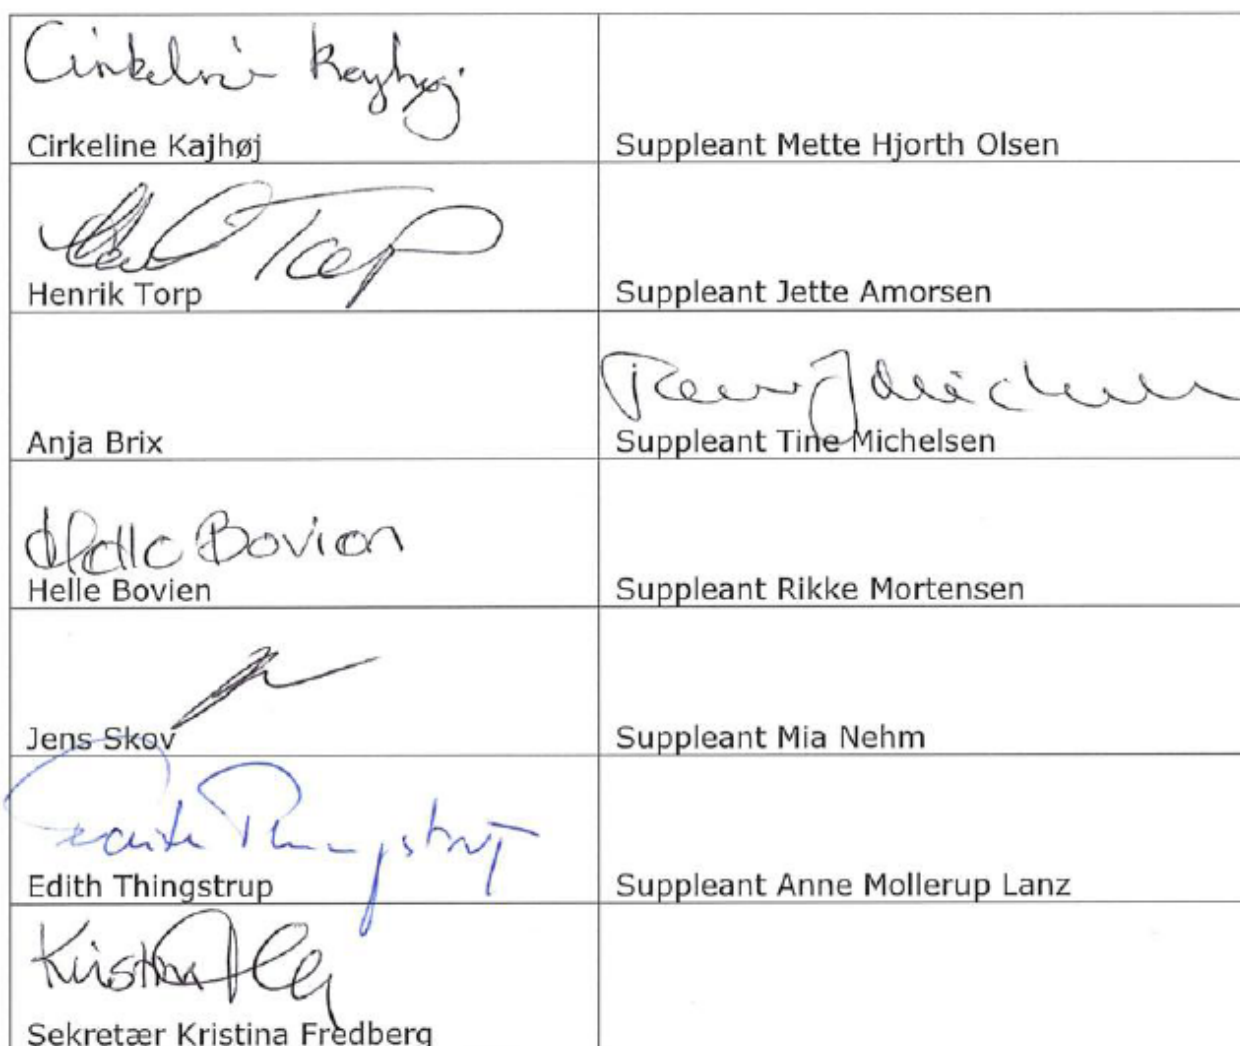 Cirkeline Kajhøj
Cirkeline Kajhøj
Suppleant Mette Hjorth Olsen
Torp
Henrik Torp
Suppleant Jette Amorsen
Anja Brix
Michelsen
Suppleant Tine Michelsen
Helle Bovien
Helle Bovien
Suppleant Rikke Mortensen
Jens Skov
Suppleant Mia Nehm
Edith Thingstrup
Edith Thingstrup
Suppleant Anne Mollerup Lanz
Kristina
Sekretær Kristina Fredberg